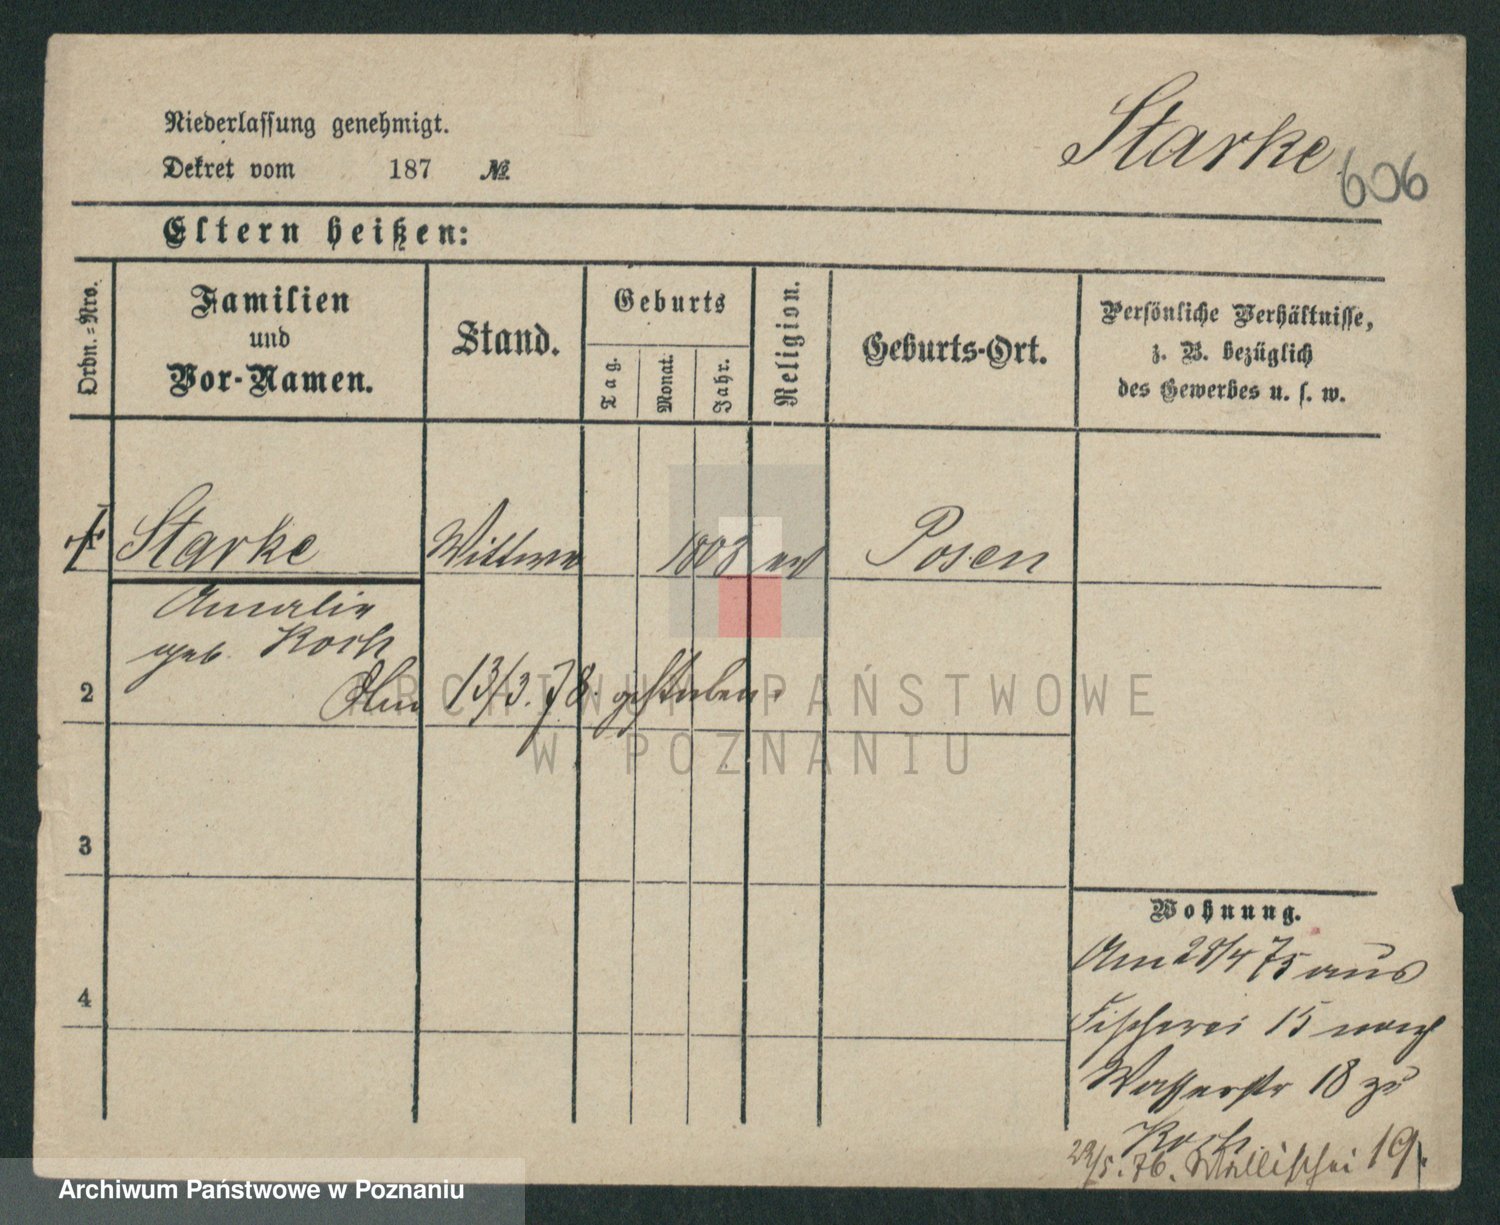 Niederlassung genehmigt.
Dekret vom 187 №
Starke
606
Eltern heißen:
Ordn.=Nro.
Familien
und
Vor-Namen.
Stand.
Geburts
Tag.
Monat.
Jahr.
Religion.
Geburts-Ort.
Persönliche Verhältnisse,
z. B. bezüglich
des Gewerbes u. s. w.
Starke Wittwe 1808 Posen
Amalie
geb. Koch
2
Am 13/3.78. gestorben.
3
4
Wohnung.
Am 28/4 75 aus
Fischerei 15 nach
Wasserstr 18 zu
Koch.
29/5.76. Wallischei 19.
ARCHIWUM PAŃSTWOWE
W POZNANIU
Archiwum Państwowe w Poznaniu